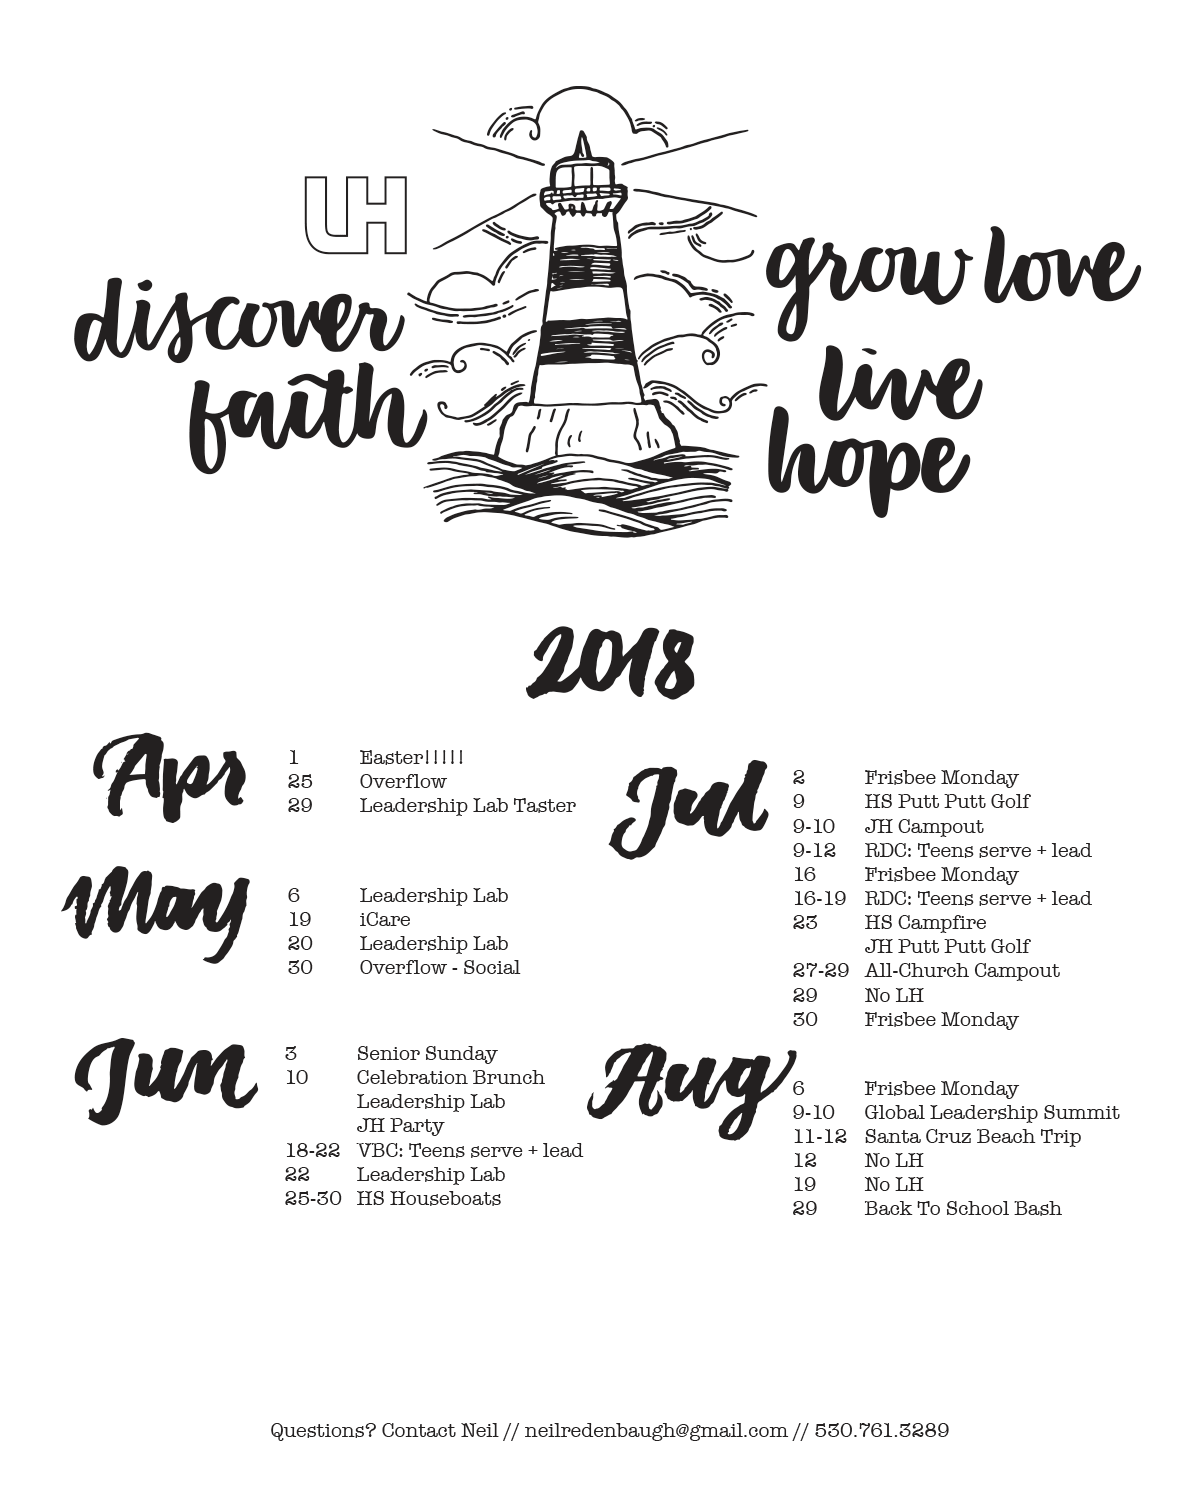 LH
discover
faith
grow love
live
hope
2018
Apr
1 Easter!!!!!
25 Overflow
29 Leadership Lab Taster
May
6 Leadership Lab
19 iCare
20 Leadership Lab
30 Overflow - Social
Jun
3 Senior Sunday
10 Celebration Brunch
Leadership Lab
JH Party
18-22 VBC: Teens serve + lead
22 Leadership Lab
25-30 HS Houseboats
Jul
2 Frisbee Monday
9 HS Putt Putt Golf
9-10 JH Campout
9-12 RDC: Teens serve + lead
16 Frisbee Monday
16-19 RDC: Teens serve + lead
23 HS Campfire
JH Putt Putt Golf
27-29 All-Church Campout
29 No LH
30 Frisbee Monday
Aug
6 Frisbee Monday
9-10 Global Leadership Summit
11-12 Santa Cruz Beach Trip
12 No LH
19 No LH
29 Back To School Bash
Questions? Contact Neil // neilredenbaugh@gmail.com // 530.761.3289